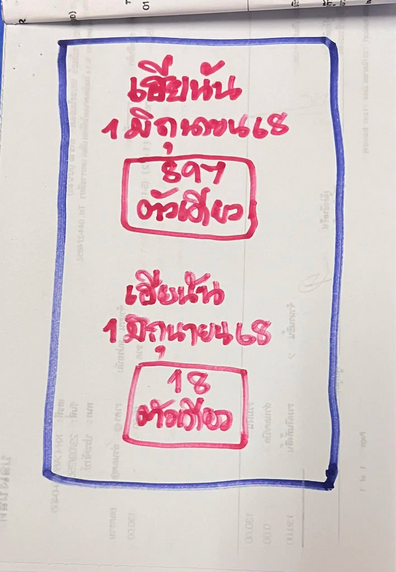 เฮียนัน
1 มิถุนายน 68
897
ตัวเดียว
เฮียนัน
1 มิถุนายน 68
18
ตัวเดียว